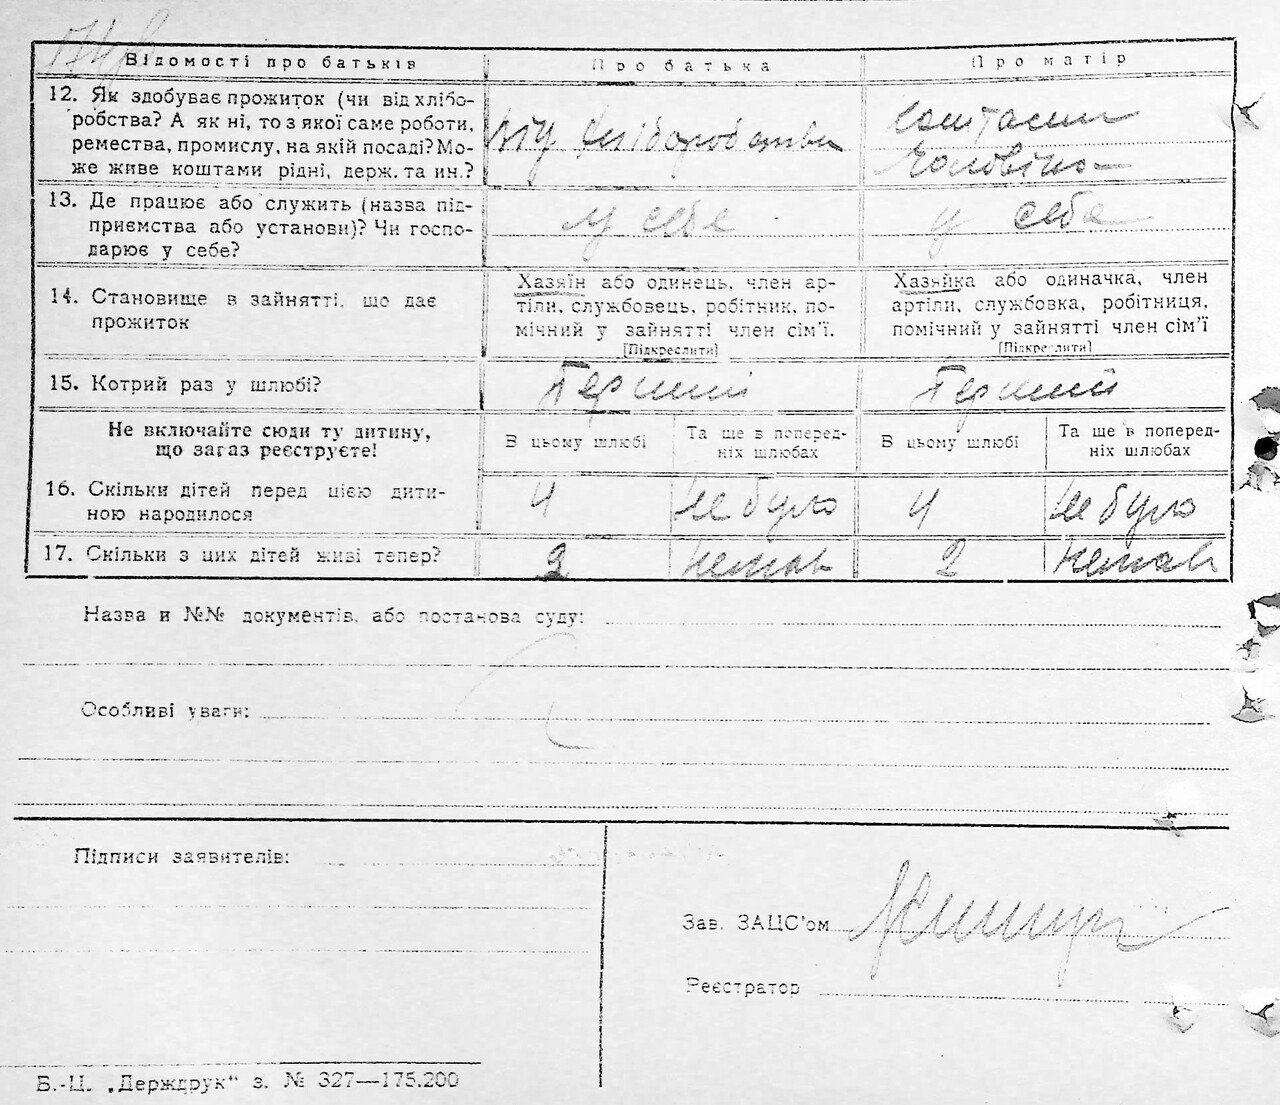 Відомості про батьків
Про батька
Про матір
12. Як здобуває прожиток (чи від хлібо-
робства? А як ні, то з якої саме роботи,
ремества, промислу, на якій посаді? Мо-
же живе коштами рідні, держ. та ин.?
від хліборобства
коштами
чоловіка
13. Де працює або служить (назва під-
приємства або установи)? Чи госпо-
дарює у себе?
у себе
у себе
14. Становище в зайнятті, що дає
прожиток
Хазяїн або одинець, член ар-
тіли, службовець, робітник, по-
мічний у зайнятті член сім'ї.
[Підкреслити]
Хазяйка або одиначка, член
артіли, службовка, робітниця,
помічний у зайнятті член сім'ї
[Підкреслити]
15. Котрий раз у шлюбі?
Перший
Перший
Не включайте сюди ту дитину,
що загаз реєструєте!
В цьому шлюбі
Та ще в поперед-
ніх шлюбах
В цьому шлюбі
Та ще в поперед-
ніх шлюбах
16. Скільки дітей перед цією дити-
ною народилося
4
не було
4
не було
17. Скільки з цих дітей живі тепер?
2
немає
2
немає
Назва и №№ документів, або постанова суду:
Особливі уваги:
Підписи заявителів:
Зав. ЗАЦС'ом
Реєстратор
Б.-Ц. „Держдрук" з. № 327—175.200